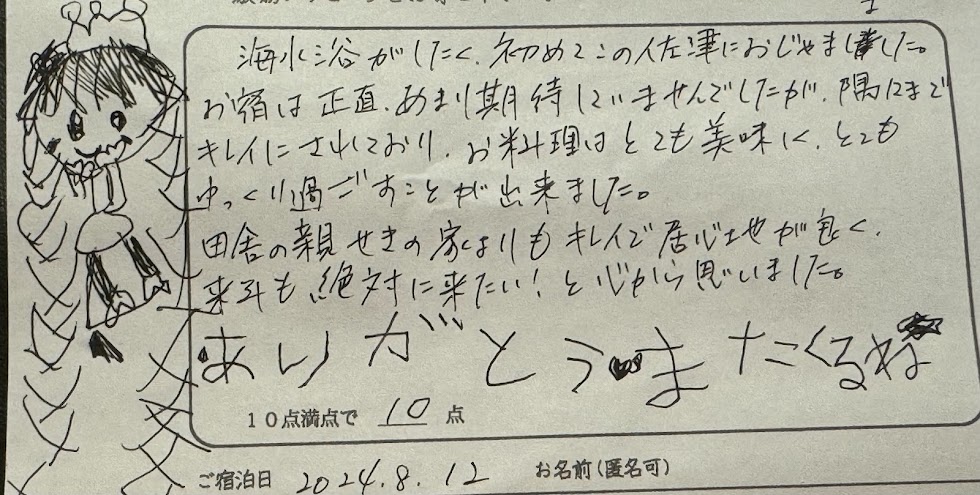 海水浴がしたく、初めてこの佐津におじゃましました。
お宿は正直、あまり期待していませんでしたが、隅にまで
キレイにされており、お料理はとても美味しく、とても
ゆっくり過ごすことが出来ました。
田舎の親せきの家よりもキレイで居心地が良く、
来年も絶対に来たい！と心から思いました。
ありがとうまたくるね
10点満点で 10 点
ご宿泊日 2024.8.12 お名前(匿名可)